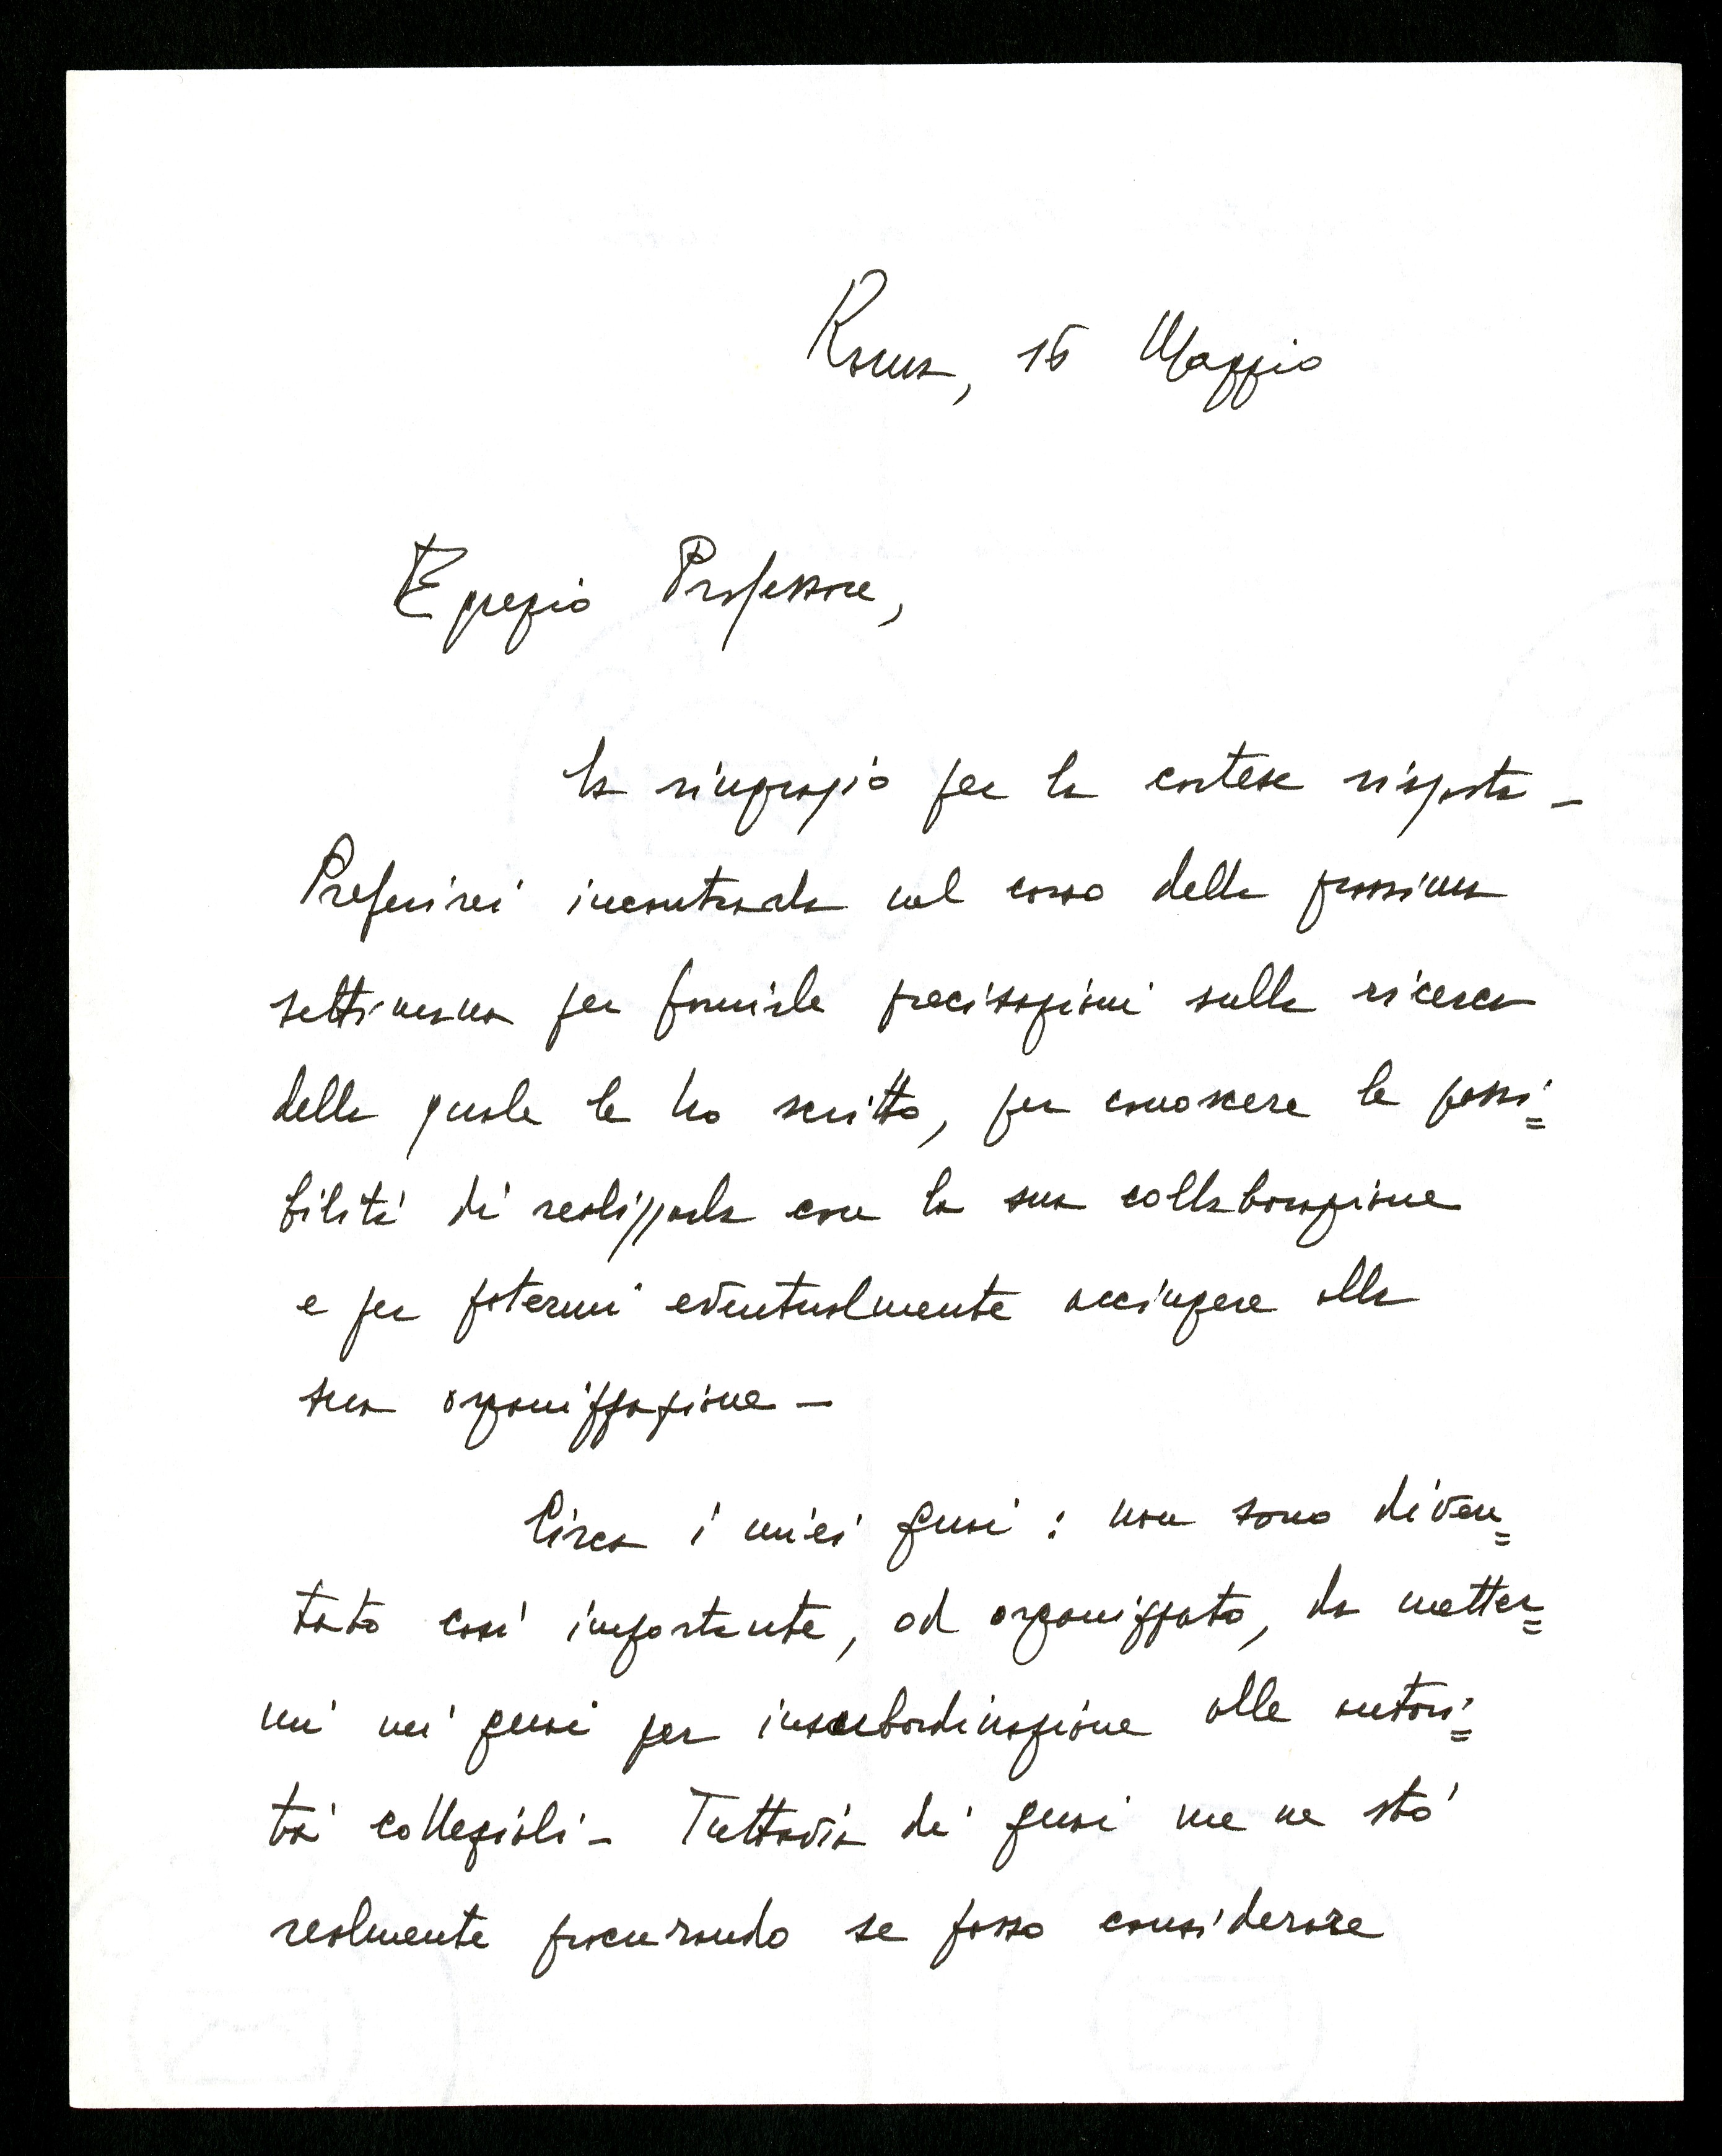 Roma, 15 Maggio
Egregio Professore,
la ringrazio per la cortese risposta –
Preferirei incontrarla nel corso della prossima
settimana per fornirle precisazioni sulla ricerca
della quale le ho scritto, per conoscere le possi=
bilità di realizzarla con la sua collaborazione
e per potermi eventualmente accingere alla
sua organizzazione –
Circa i miei guai : non sono diven=
tato così importante, od organizzato, da metter=
mi nei guai per insubordinazione alle autori=
tà collegiali – Tuttavia di guai me ne stò
realmente procurando se posso considerare